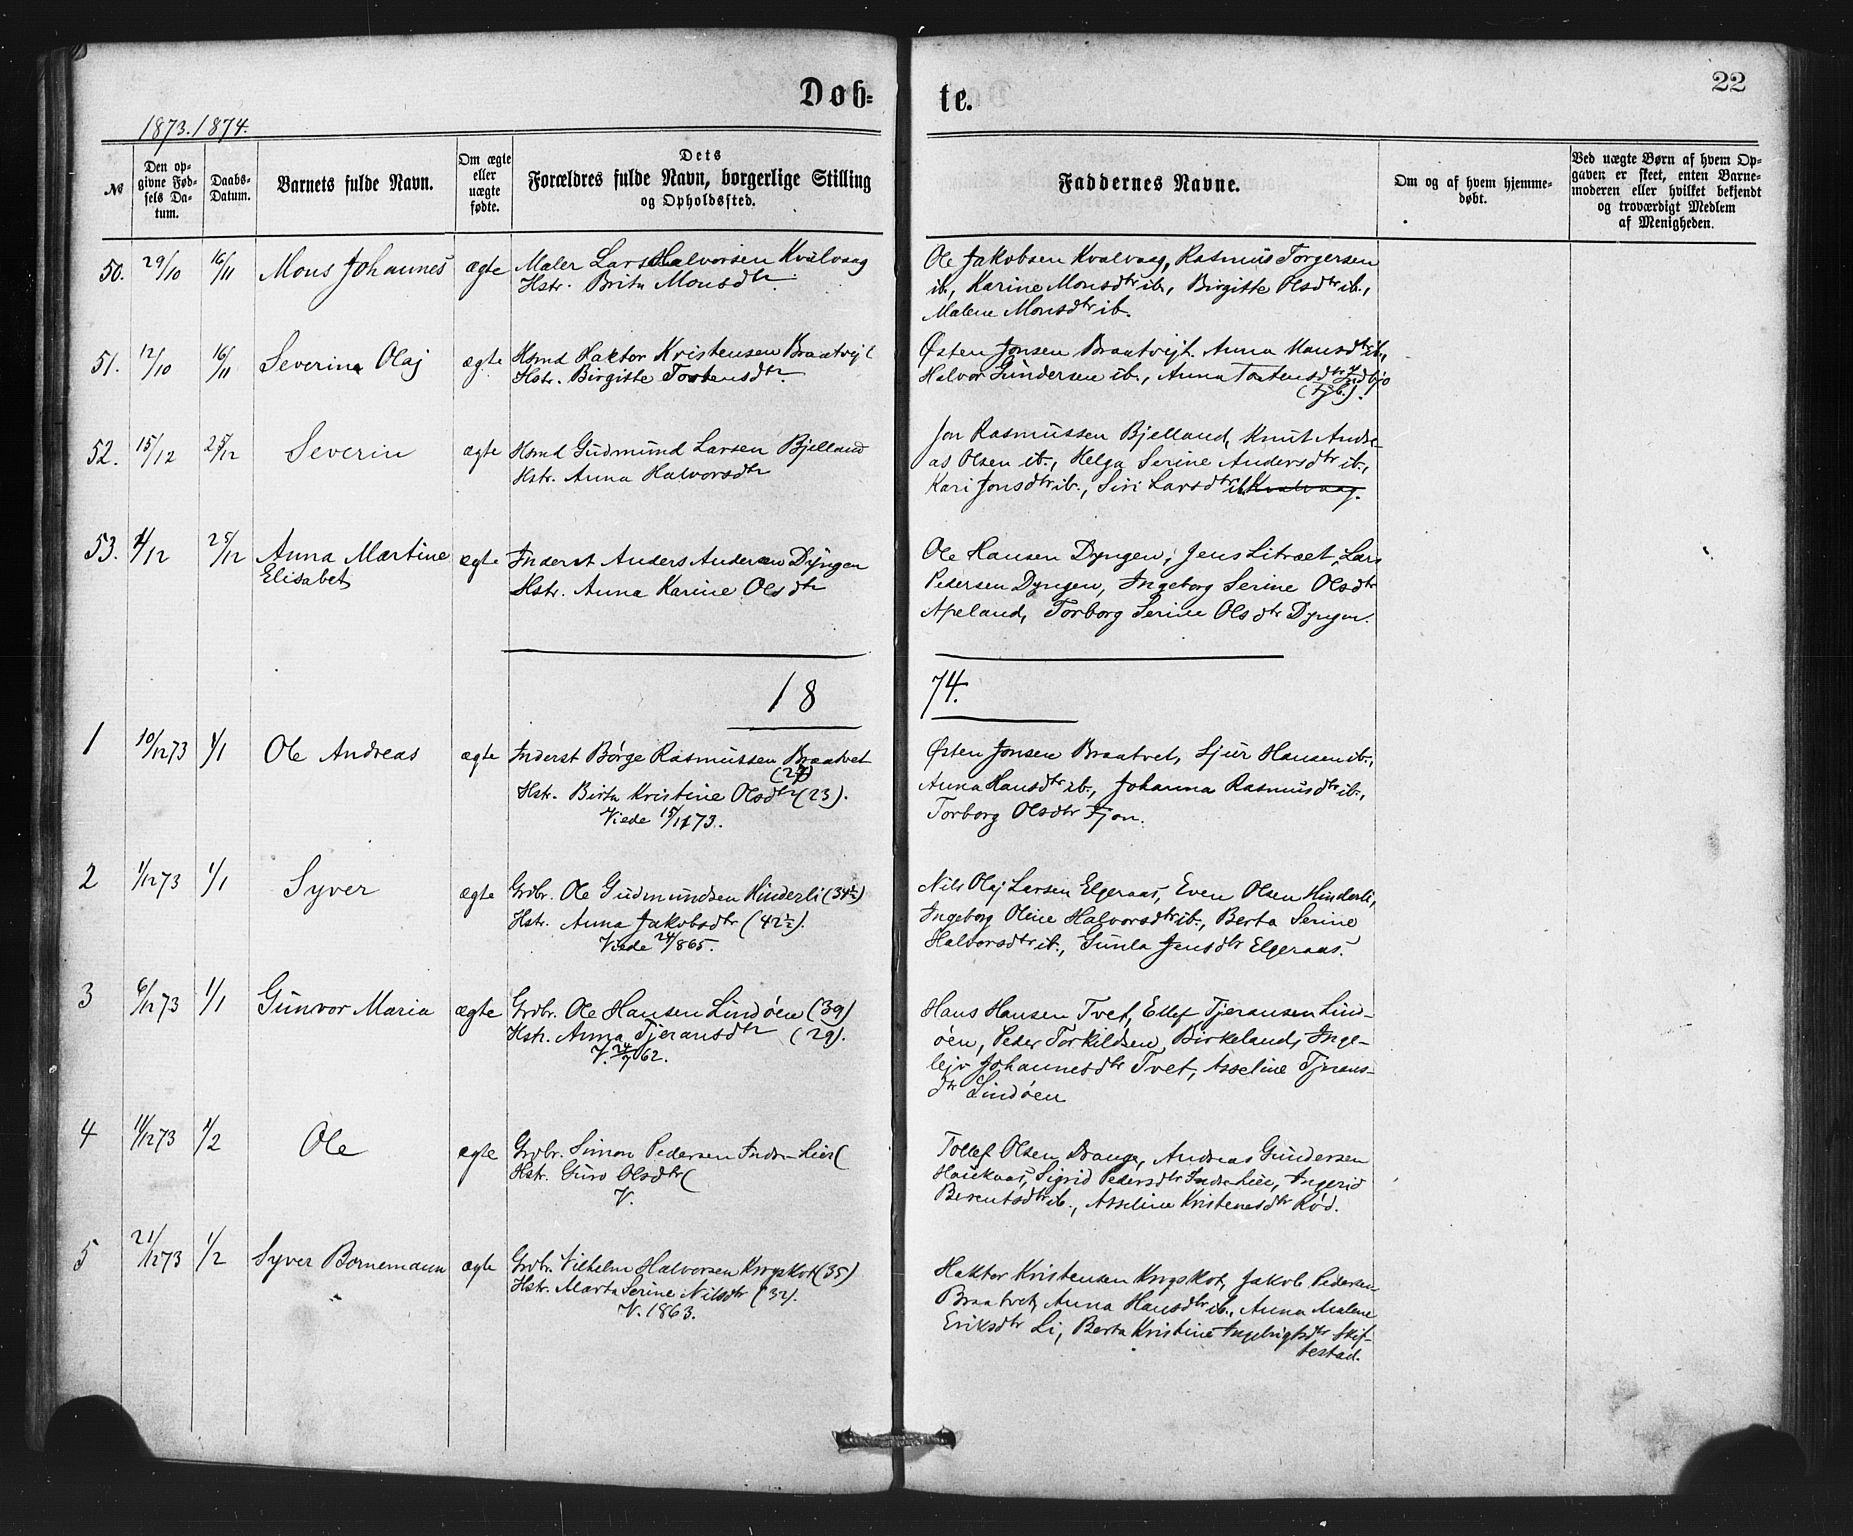 22
Døb=
te.
1873. 1874.
№
Den op-
givne Fød-
sels Da-
tum.
Daabs-
Datum.
Barnets fulde Navn.
Om ægte
eller
uægte
fødte.
Dets
Forældres fulde Navn, borgerlige Stilling
og Opholdssted.
Faddernes Navne.
Om og af hvem hjemme-
døbt.
Ved uægte Børn af hvem Op-
gaven er skeet, enten Barne-
moderen eller hvilket bekjendt
og troværdigt Medlem
af Menigheden.
50. 29/10 16/11 Mons Johannes ægte Maler Lars Halvorsen Kvalvaag
Hstr. Brita Monsdtr.
Ole Jakobsen Kvalvaag, Rasmus Torgersen
ib., Karine Monsdtr ib., Birgitte Olsdtr ib.,
Malene Monsdtr ib.
51. 12/10 16/11 Severine Olaj ægte Hsmd Haktor Kristensen Braatvejt
Hstr. Birgitte Tostensdtr.
Østen Jonsen Braatvejt. Anna Hansdtr ib.,
Halvor Gundersen ib., Anna Tostensdtr Indbjo
52. 15/12 25/12 Severin ægte Hsmd Gudmund Larsen Bjelland
Hstr. Anna Halvorsdtr
Jon Rasmussen Bjelland, Knut Andre-
as Olsen ib., Helga Serine Andersdtr ib.,
Kari Jonsdtr ib., Siri Larsdtr ib. Kvalvaag.
53. 4/12 25/12 Anna Martine ægte Inderst Anders Andersen Dyngen
Elisabet
Hstr. Anna Karine Olsdtr
Ole Hansen Dyngen, Jens Litræt, Lars
Pedersen Dyngen, Ingeborg Serine Olsdtr
Apeland, Torborg Serine Olsdtr Dyngen.
18
74.
1 10/12 73 1/1 Ole Andreas ægte Inderst Børge Rasmussen Braatvet
(27)
Hstr. Birta Kristine Olsdtr (23).
Viede 15/11 73.
Østen Jonsen Braatvet, Sjur Hansen ib.,
Anna Hansdtr ib., Johanna Rasmusdtr ib.,
Torborg Olsdtr Fjon.
2 1/12 73 1/1 Syver ægte Grdbr. Ole Gudmundsen Hinderli (34½)
Hstr. Anna Jakobsdtr (42½).
Viede 24/865.
Nils Olaj Larsen Elgeraas, Even Olsen Hinderli,
Ingeborg Oline Halvorsdtr ib., Berta Serine
Halvorsdtr ib., Gunla Jensdtr Elgeraas.
3 6/12 73 1/1 Gunvor Maria ægte Grdbr. Ole Hansen Lindøen (39)
Hstr. Anna Tjeransdtr (29).
V. 24/7 62.
Hans Hansen Tvet, Ellef Tjeransen Lind-
øen, Peder Torkildsen Birkeland, Inge-
lejv Johannesdtr Tvet, Asseline Tjerans-
dtr Lindøen
4 11/12 73 1/2 Ole ægte Grdbr. Simon Pedersen Indre-Lier (
Hstr. Guro Olsdtr (
V.
Tollef Olsen Drange, Andreas Gundersen
Haukaas, Sigrid Pedersdtr Indre Lier, Ingerid
Berentsdtr ib., Asseline Kristensdtr Rød.
5 21/12 73 1/2 Syver Bornemann ægte Grdbr. Vilhelm Halvorsen Krogskot (35)
Hstr. Marta Serine Nilsdtr (32).
V. 1863.
Haktor Kristensen Krogskot, Jakob Pedersen
Braatvet, Anna Hansdtr ib., Anna Malene
Eriksdtr Li, Berta Kristine Ingebrigtsdtr Skif-
testad.